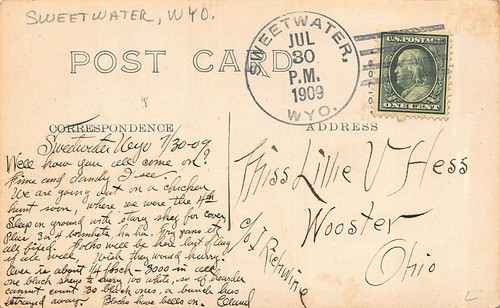 SWEETWATER, WYO.
POST CARD
SWEETWATER, WYO.
JUL
30
P.M.
1909
U.S. POSTAGE
ONE CENT
CORRESPONDENCE
ADDRESS
Sweetwater Wyo 7/30-09
Well how you all come on?
Fine and dandy I see.
We are going out on a chicken
hunt soon, where we were the 4th
Sleep on ground with starry sky for cover
Plus 3 or 4 ha ha.
will be here last of Aug
Wish they would hurry.
is about 3000 in all
one black sheep to every 100 white, so if herder
cannot count 30 black ones, a bunch has
strayed away. Blacks have bells on.
Miss Lillie V Hess
c/o J
Wooster
Ohio